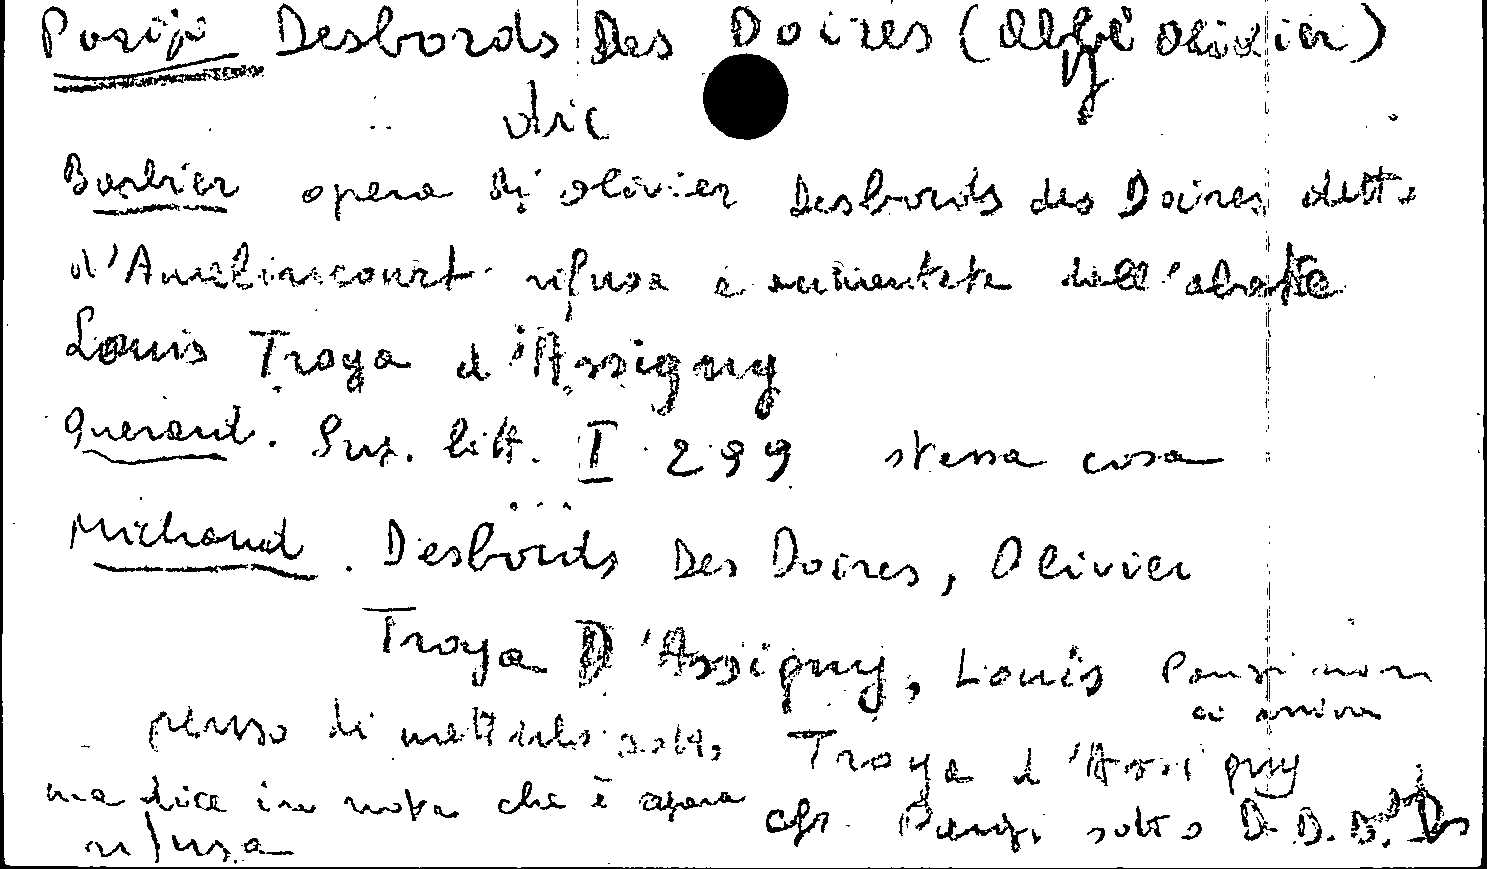 Parigi Desbords Des Doires (Abbé Olivier)
dic
Barbier opera di Olivier Desbords des Doires detto
d'Amelincourt rifusa e aumentata dall'abate
Louis Troya d'Assigny
Querard. Sup. litt. I 299 stessa cosa
Michaud. Desbords Des Doires, Olivier
Troya D'Assigny, Louis Parigi non
ci arriva
penso di metterlo sotto Troya d'Assigny
ma dice in nota che è opera
rifusa
cfr. Parigi sotto D. D. D.